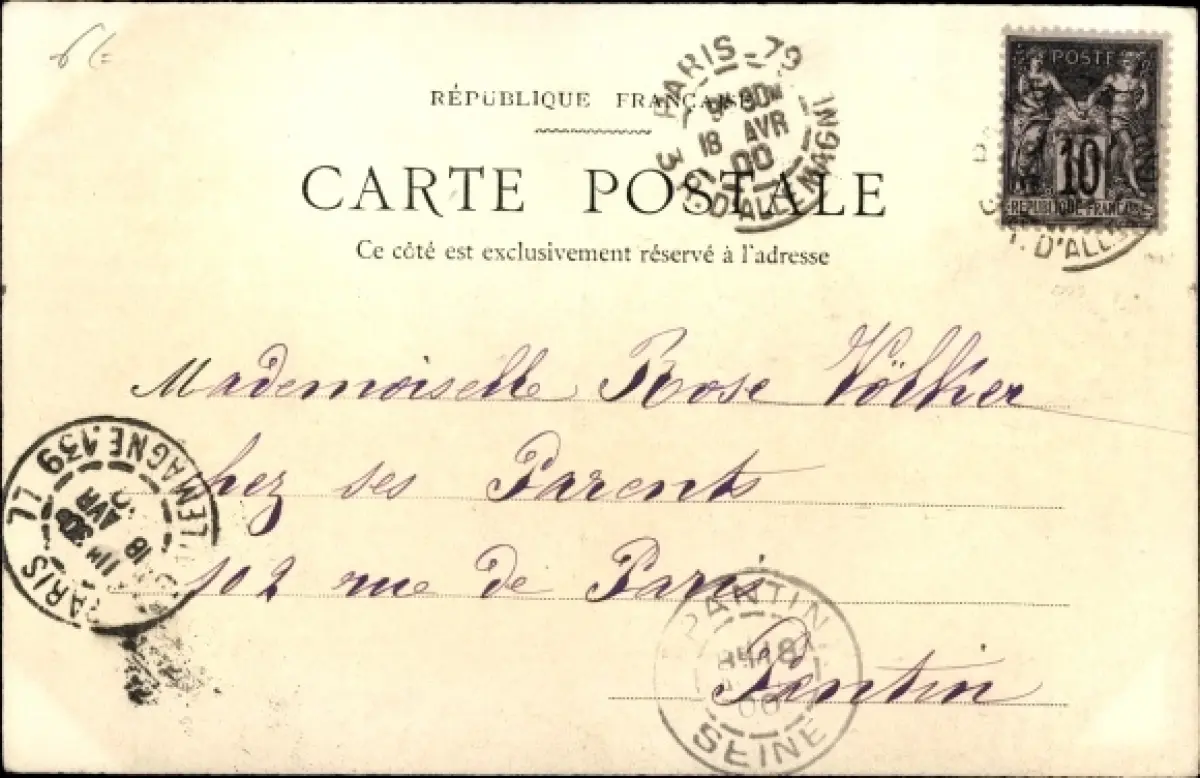 RÉPUBLIQUE FRANÇAISE
CARTE POSTALE
Ce côté est exclusivement réservé à l'adresse
PARIS - 79
18 AVR
00
D'ALLEMAGNE
POSTE
10
REPUBLIQUE FRANÇAISE
D'ALL
Mademoiselle Rose Völkier
chez ses Parents
102 rue de Paris
Pantin
PARIS
LEMAGNE.139
18
AVR
PANTIN
18
00
SEINE